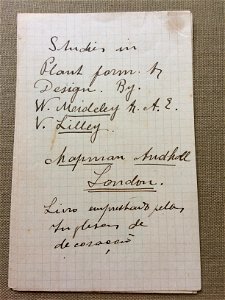 Studies in
Plant form &
Design. By.
W. Meidgley & A. E.
V. Lilley.
Chapman And Hall
London.
Livro emprestado pelas
Inglesas de
decoração